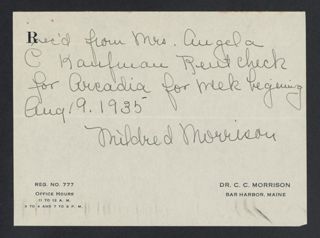 Rec'd from Mrs. Angela
C Kaufman Rent check
for Arcadia for week begining
Aug 19. 1935
Mildred Morrison
REG. NO. 777
OFFICE HOURS
11 TO 12 A. M.
2 TO 4 AND 7 TO 8 P. M.
DR. C. C. MORRISON
BAR HARBOR, MAINE